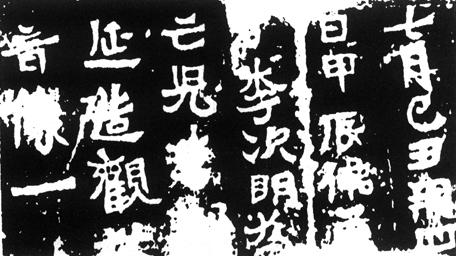 七月己丑朔
日甲辰佛
李次明為
亡兒
延造觀
音像一